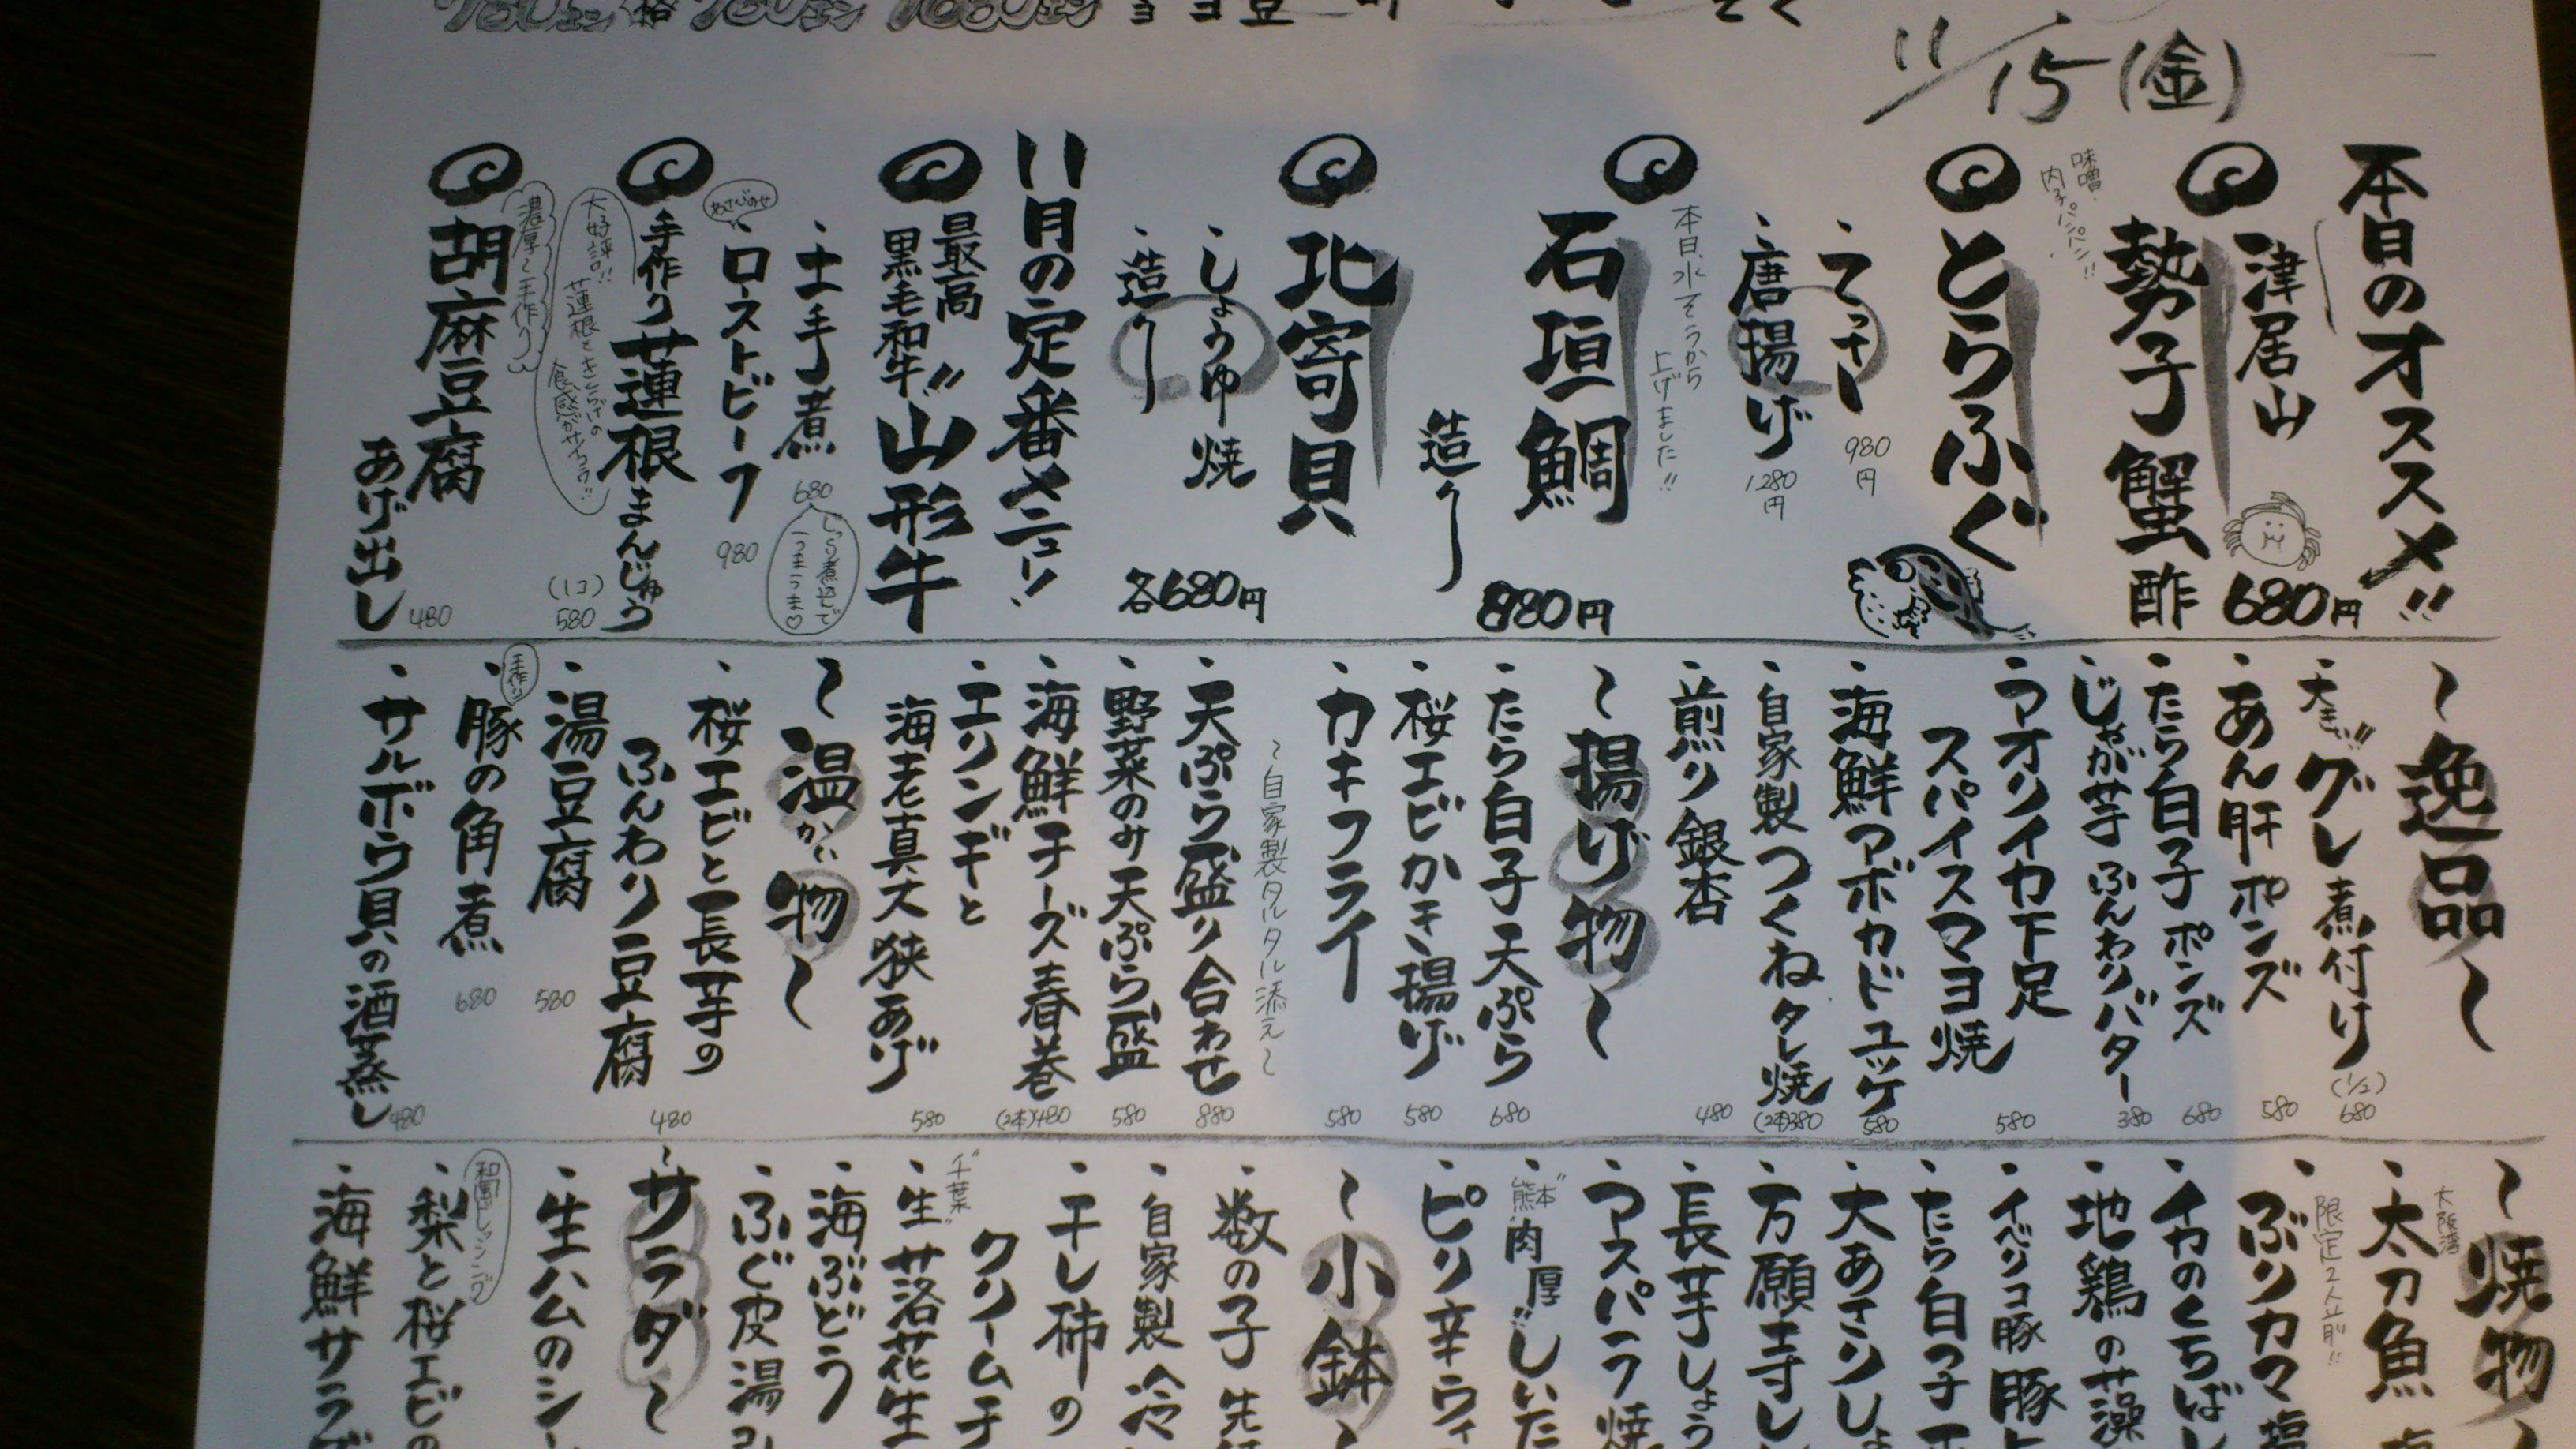 11/15(金)
本日のオススメ!!
津居山
勢子蟹酢
680円
味噌、
内子パンパン!!
とらふぐ
・てっさ
980円
・唐揚げ
1280円
本日、水そうから
上げました!!
石垣鯛
造り
880円
北寄貝
・しょうゆ焼
・造り
各680円
11月の定番メニュー!
最高
黒毛和牛"山形牛
・土手煮
680
じっくり煮込んで
うまうま♡
わさびのせ
・ローストビーフ
980
手作り蓮根まんじゅう
(1コ)
580
大好評!!
蓮根ときくらげの
食感がサイコウ!!
濃厚〜手作り
胡麻豆腐
あげ出し
480
〜逸品〜
・大きい!!グレ煮付け
(1/2)
680
・あん肝ポンズ
580
・たら白子ポンズ
680
・じゃが芋ふんわりバター
380
・アオリイカ下足
スパイスマヨ焼
580
・海鮮アボカドユッケ
580
・自家製つくねタレ焼
(2本)380
・煎り銀杏
480
〜揚げ物〜
・たら白子天ぷら
680
・桜エビかき揚げ
580
・カキフライ
580
〜自家製タルタル添え〜
・天ぷら盛り合わせ
880
・野菜のみ天ぷら盛
580
・海鮮チーズ春巻
(2本)480
・エリンギと
海老真丈狭あげ
580
〜温かい物〜
・桜エビと長芋の
ふんわり豆腐
480
・湯豆腐
580
手作り
・豚の角煮
680
・サルボウ貝の酒蒸し
480
〜焼物〜
大阪湾
・太刀魚
限定2人前!!
・ぶりカマ塩
・イカのくちばし
・地鶏の藻
・イベリコ豚豚ト
・たら白子
・大あさりしょ
・万願寺し
・長芋しょう
・アスパラ焼
熊本"肉厚"しいた
・ピリ辛ウィ
〜小鉢〜
・数の子
・自家製冷
・干し柿の
クリームチ
"千葉"
・生落花生
・海ぶどう
・ふぐ皮湯引
〜サラダ〜
・生ハムのシー
和風ドレッシング
・梨と桜エビの
・海鮮サラダ